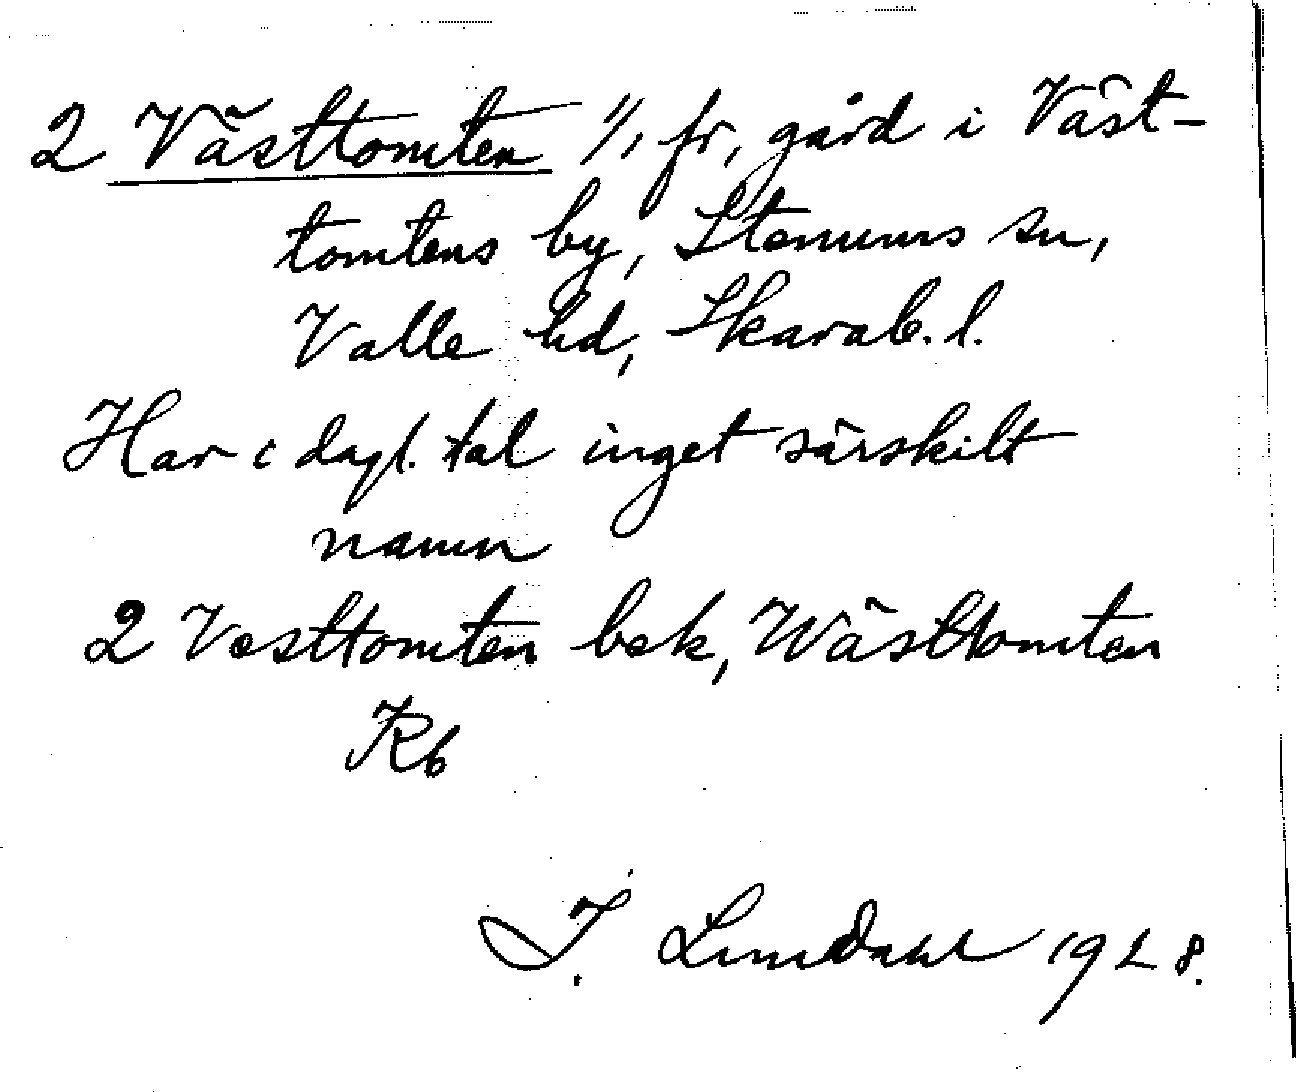 2 Västtomten 1/1 fr, gård i Väst-
tomtens by, Stenums sn,
Valle hd, Skarab. l.
Har i dagl. tal inget särskilt
namn
2 Vesttomten bek, Wästtomten
Rb
J. Lindahl 1928.